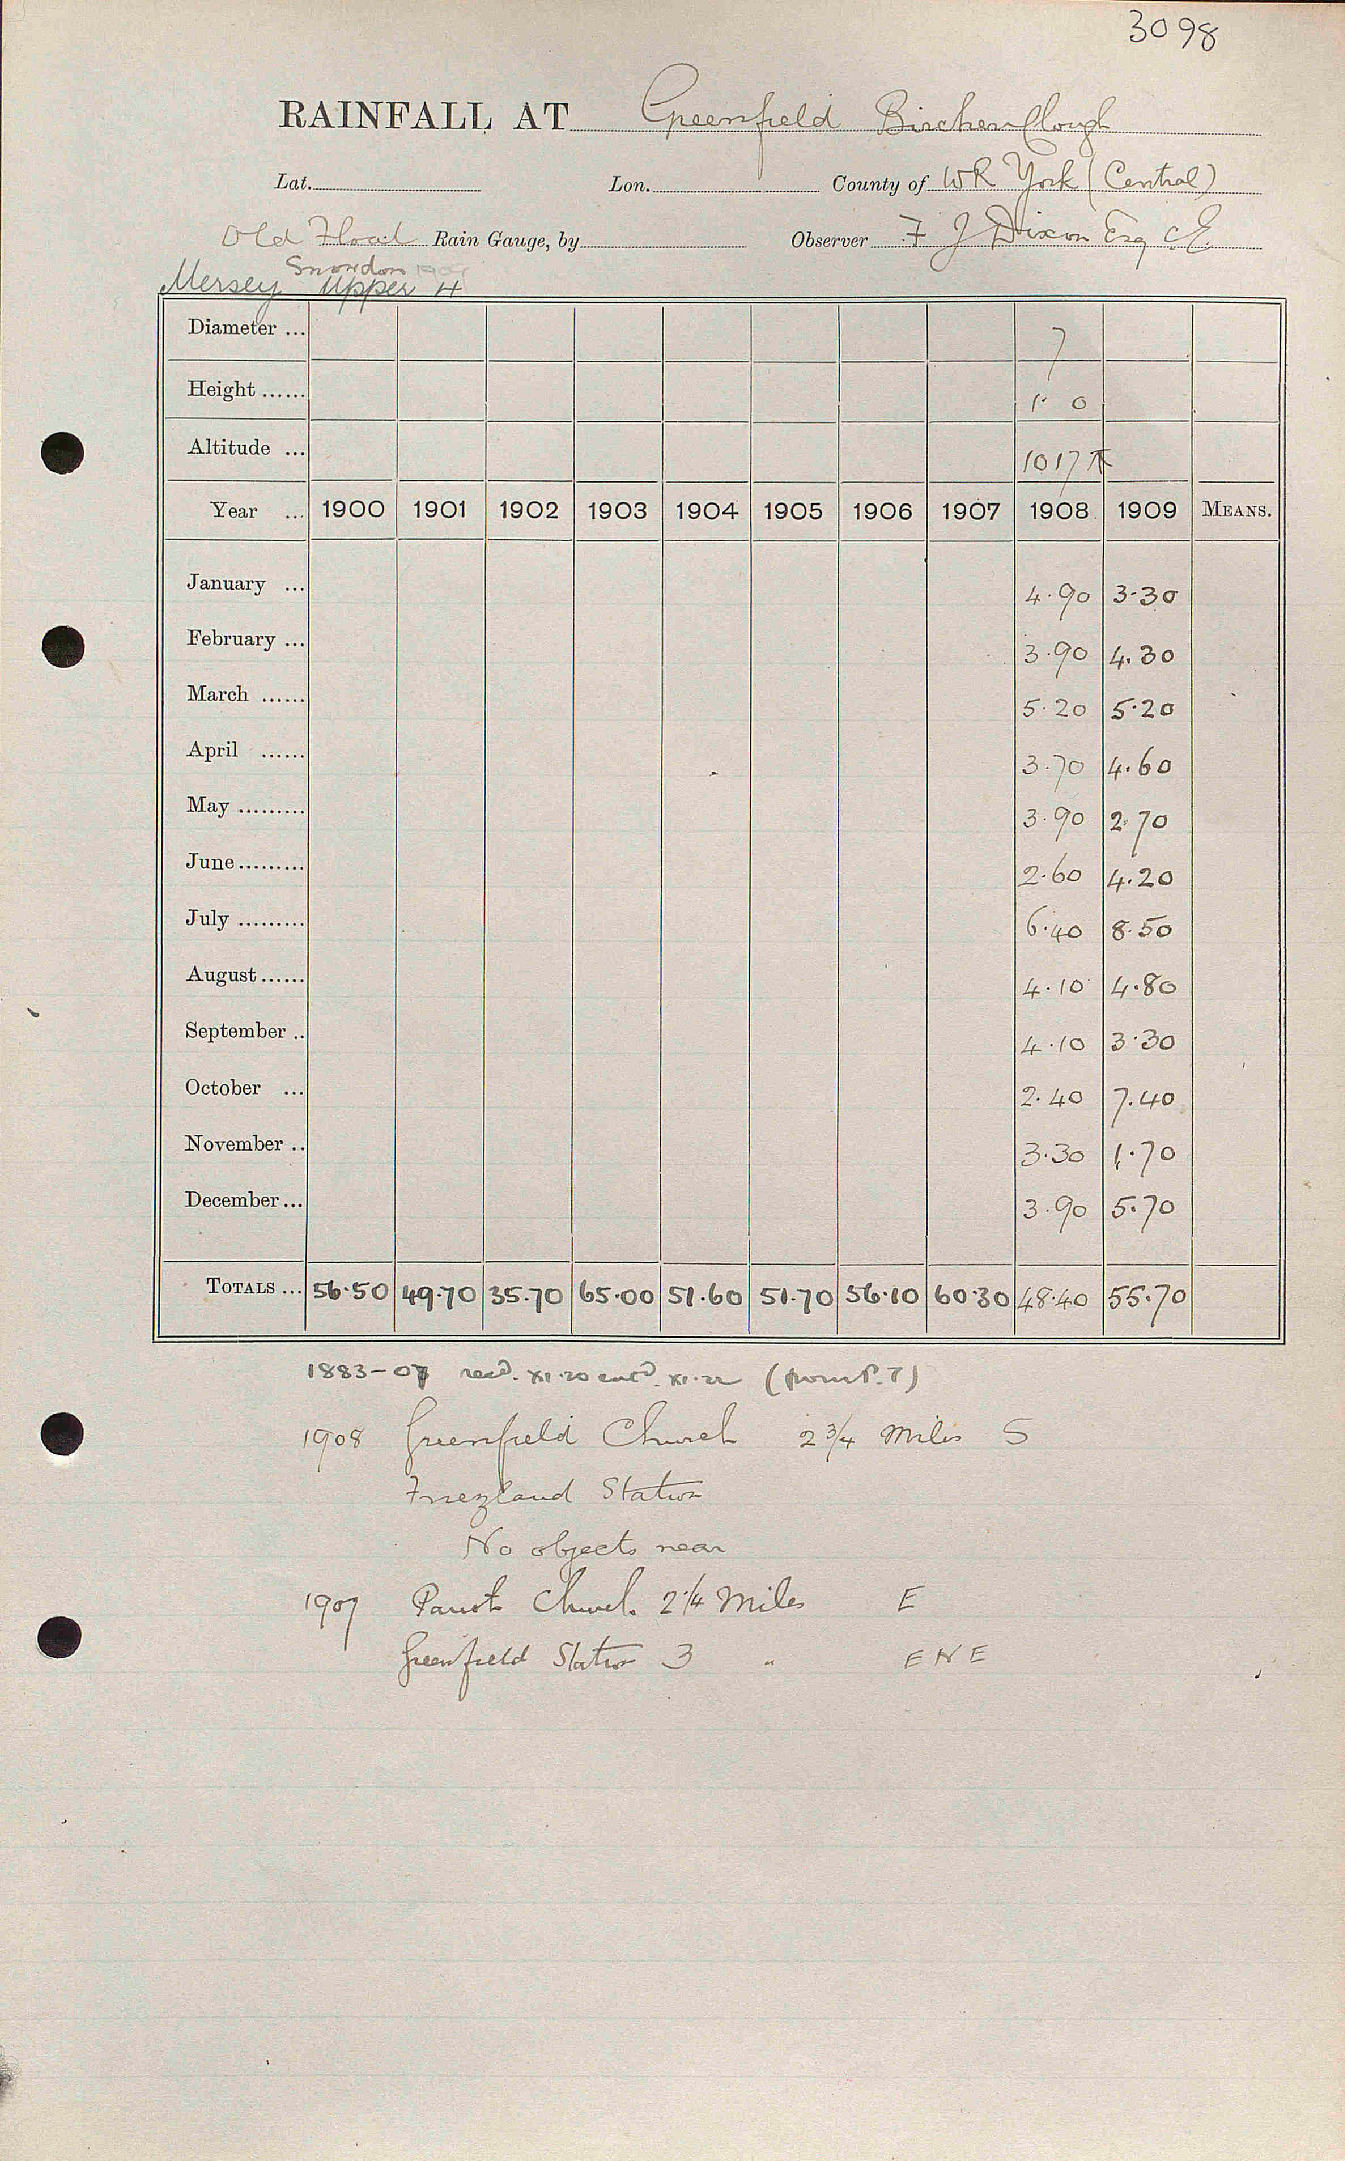 3098
RAINFALL AT Greenfield Birchen Clough
Lat. Lon. County of WR York (Central)
Old Float Rain Gauge, by Observer F J Dixon Esq C.E.
Snowdon 1909
Mersey Upper 4
Diameter ... 7
Height ...... 1. 0
Altitude ... 1017
Year ... 1900 1901 1902 1903 1904 1905 1906 1907 1908 1909 MEANS.
January ... 4.90 3.30
February ... 3.90 4.30
March ...... 5.20 5.20
April ...... 3.70 4.60
May ......... 3.90 2.70
June ......... 2.60 4.20
July ......... 6.40 8.50
August ...... 4.10 4.80
September .. 4.10 3.30
October ... 2.40 7.40
November .. 3.30 1.70
December ... 3.90 5.70
TOTALS ... 56.50 49.70 35.70 65.00 51.60 51.70 56.10 60.30 48.40 55.70
1883-07 recd. XI.20 entd. XI.22 (from P.T)
1908 Greenfield Church 2 3/4 Miles S
Friezland Station
No objects near
1909 Church 2 1/4 Miles E
Greenfield Station 3 " ENE